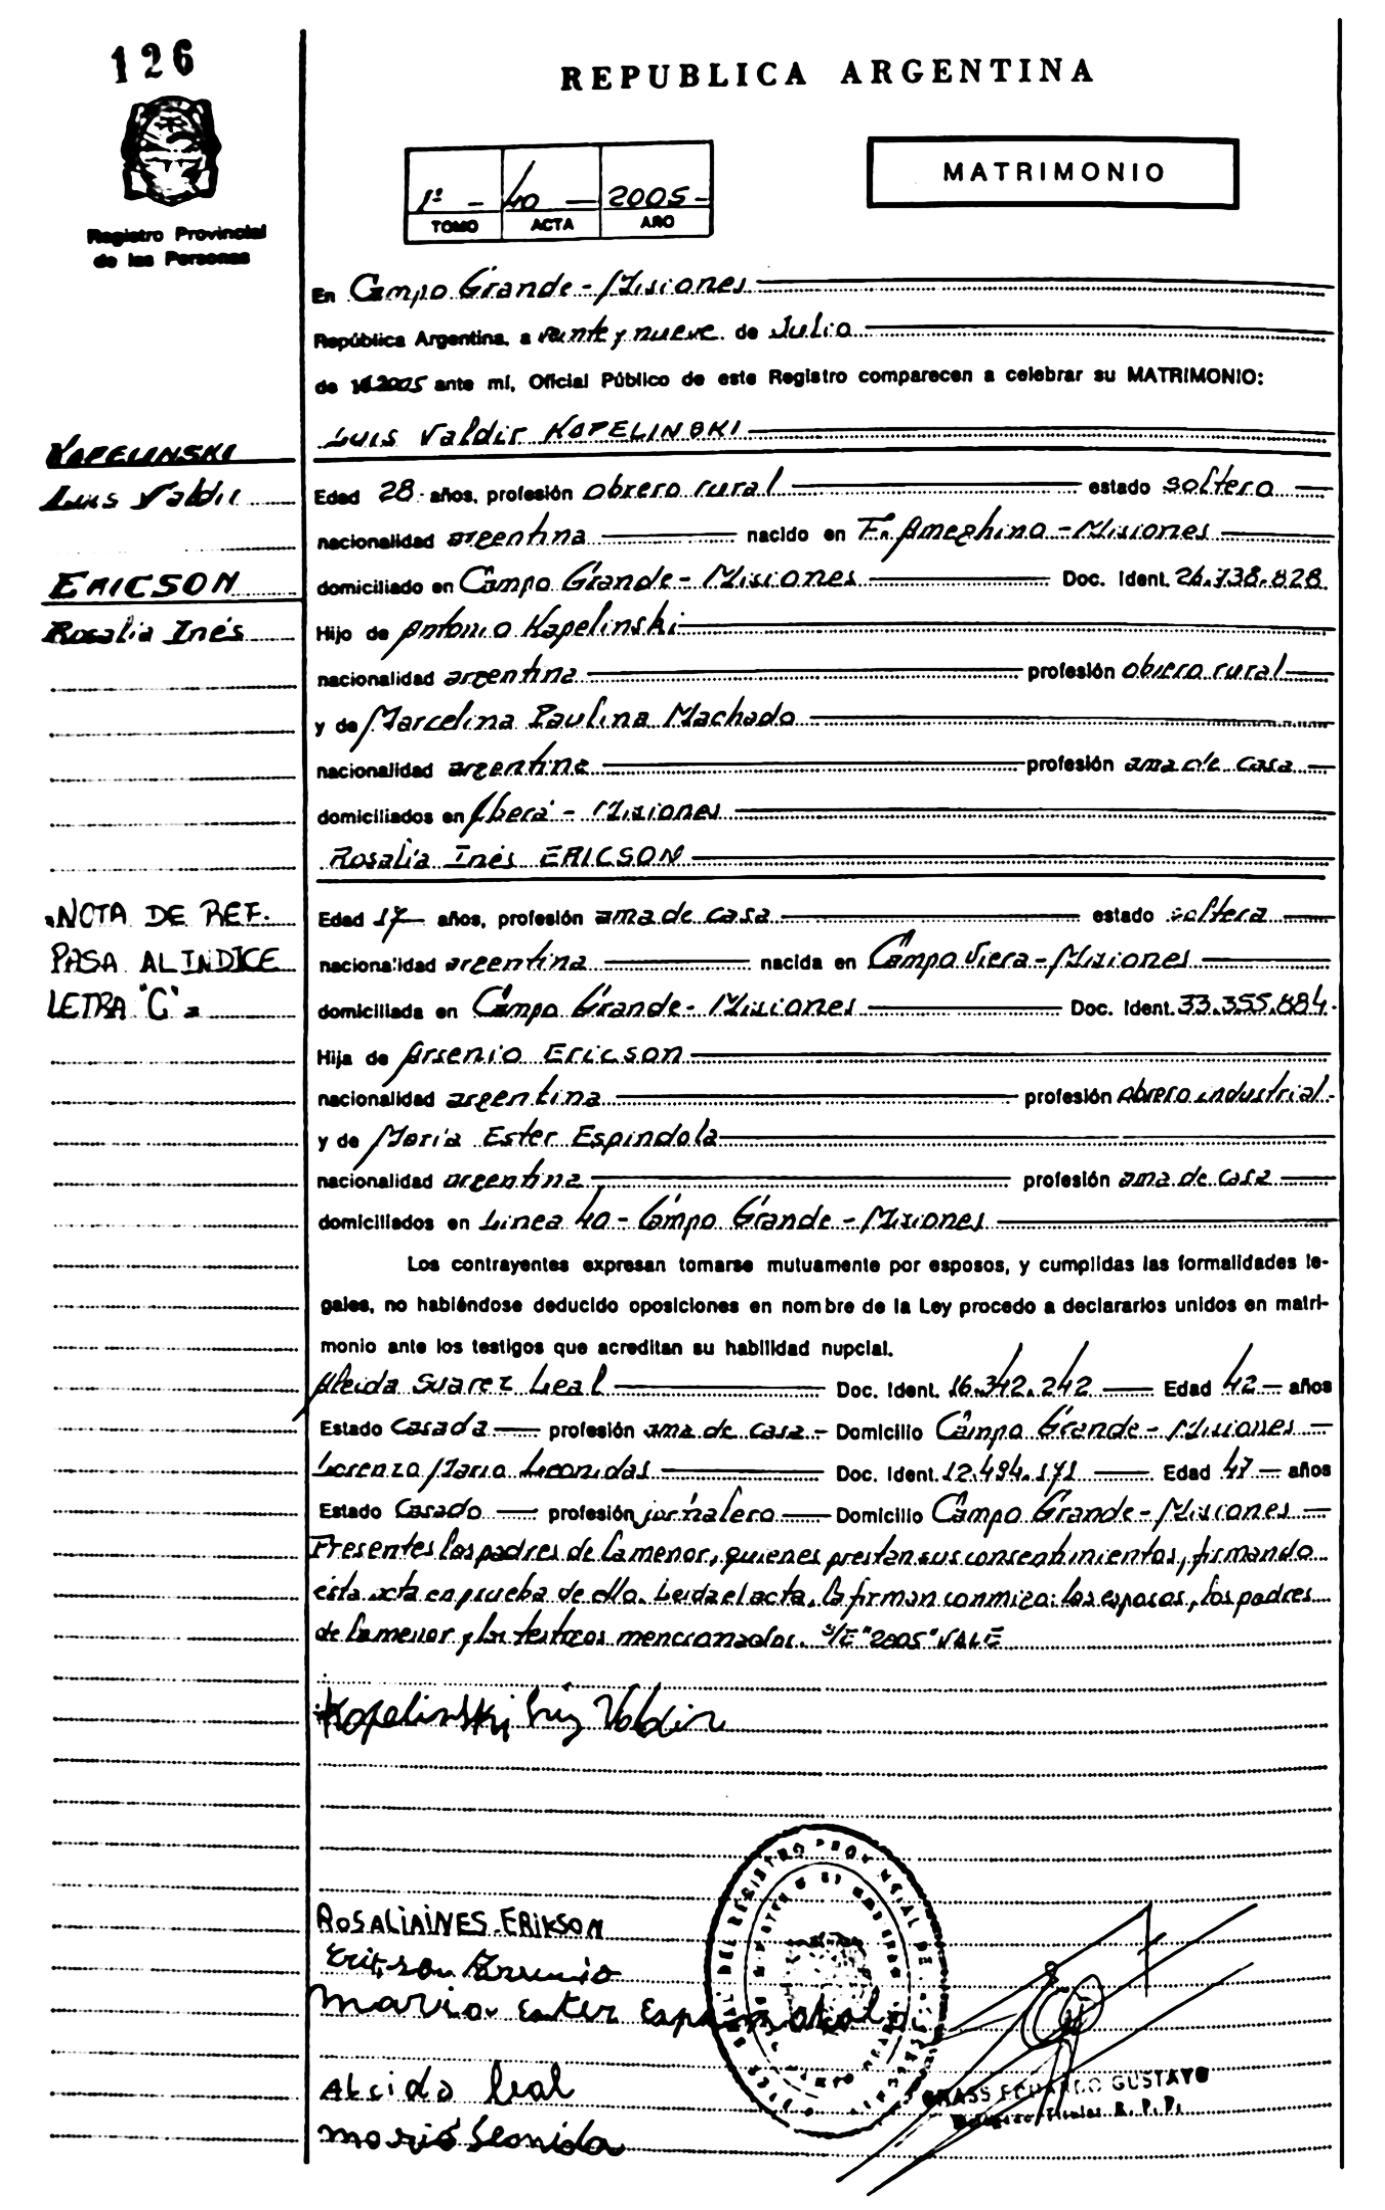 126
REPUBLICA ARGENTINA
MATRIMONIO
1º - 40 - 2005 -
TOMO ACTA AÑO
Registro Provincial
de las Personas
En Campo Grande - Misiones
República Argentina, a veinte y nueve de Julio
de 2005 ante mí, Oficial Público de este Registro comparecen a celebrar su MATRIMONIO:
Luis Valdir KOPELINSKI
KAPELINSKI
Luis Valdir
Edad 28 años, profesión obrero rural estado soltero
nacionalidad argentina nacido en F. Ameghino - Misiones
ERICSON
domiciliado en Campo Grande - Misiones Doc. Ident. 26.738.828
Rosalia Inés
Hijo de Antonio Kapelinski
nacionalidad argentina profesión obrero rural
y de Marcelina Paulina Machado
nacionalidad argentina profesión ama de casa
domiciliados en Iberá - Misiones
Rosalia Inés ERICSON
NOTA DE REF.
PASA AL INDICE
LETRA "C" =
Edad 17 años, profesión ama de casa estado soltera
nacionalidad argentina nacida en Campo Viera - Misiones
domiciliada en Campo Grande - Misiones Doc. Ident. 33.355.884.
Hija de Arsenio Ericson
nacionalidad argentina profesión obrero industrial
y de María Ester Espindola
nacionalidad argentina profesión ama de casa
domiciliados en Linea 40 - Campo Grande - Misiones
Los contrayentes expresan tomarse mutuamente por esposos, y cumplidas las formalidades le-
gales, no habiéndose deducido oposiciones en nombre de la Ley procedo a declararlos unidos en matri-
monio ante los testigos que acreditan su habilidad nupcial.
Suarez Leal Doc. Ident. 16.342.242 Edad 42 años
Estado Casada profesión ama de casa - Domicilio Campo Grande - Misiones
Lorenzo Mario Leonidas Doc. Ident. 12.494.171 Edad 47 años
Estado Casado profesión jornalero Domicilio Campo Grande - Misiones
Presentes los padres de la menor, quienes prestan sus consentimientos, firmando
ésta acta en prueba de ello. Leida el acta, la firman conmigo: los esposos, los padres
de la menor y los testigos mencionados. S/E "2005" VALE
Kopelinski Luis Valdir
ROSALIAINES ERIKSON
Ericson Arsenio
Maria Ester Espindola
Alcida Leal
Mario Leonida
DEL REGISTRO PROVINCIAL DE
EDUARDO GUSTAVO
Titular R. P. P.